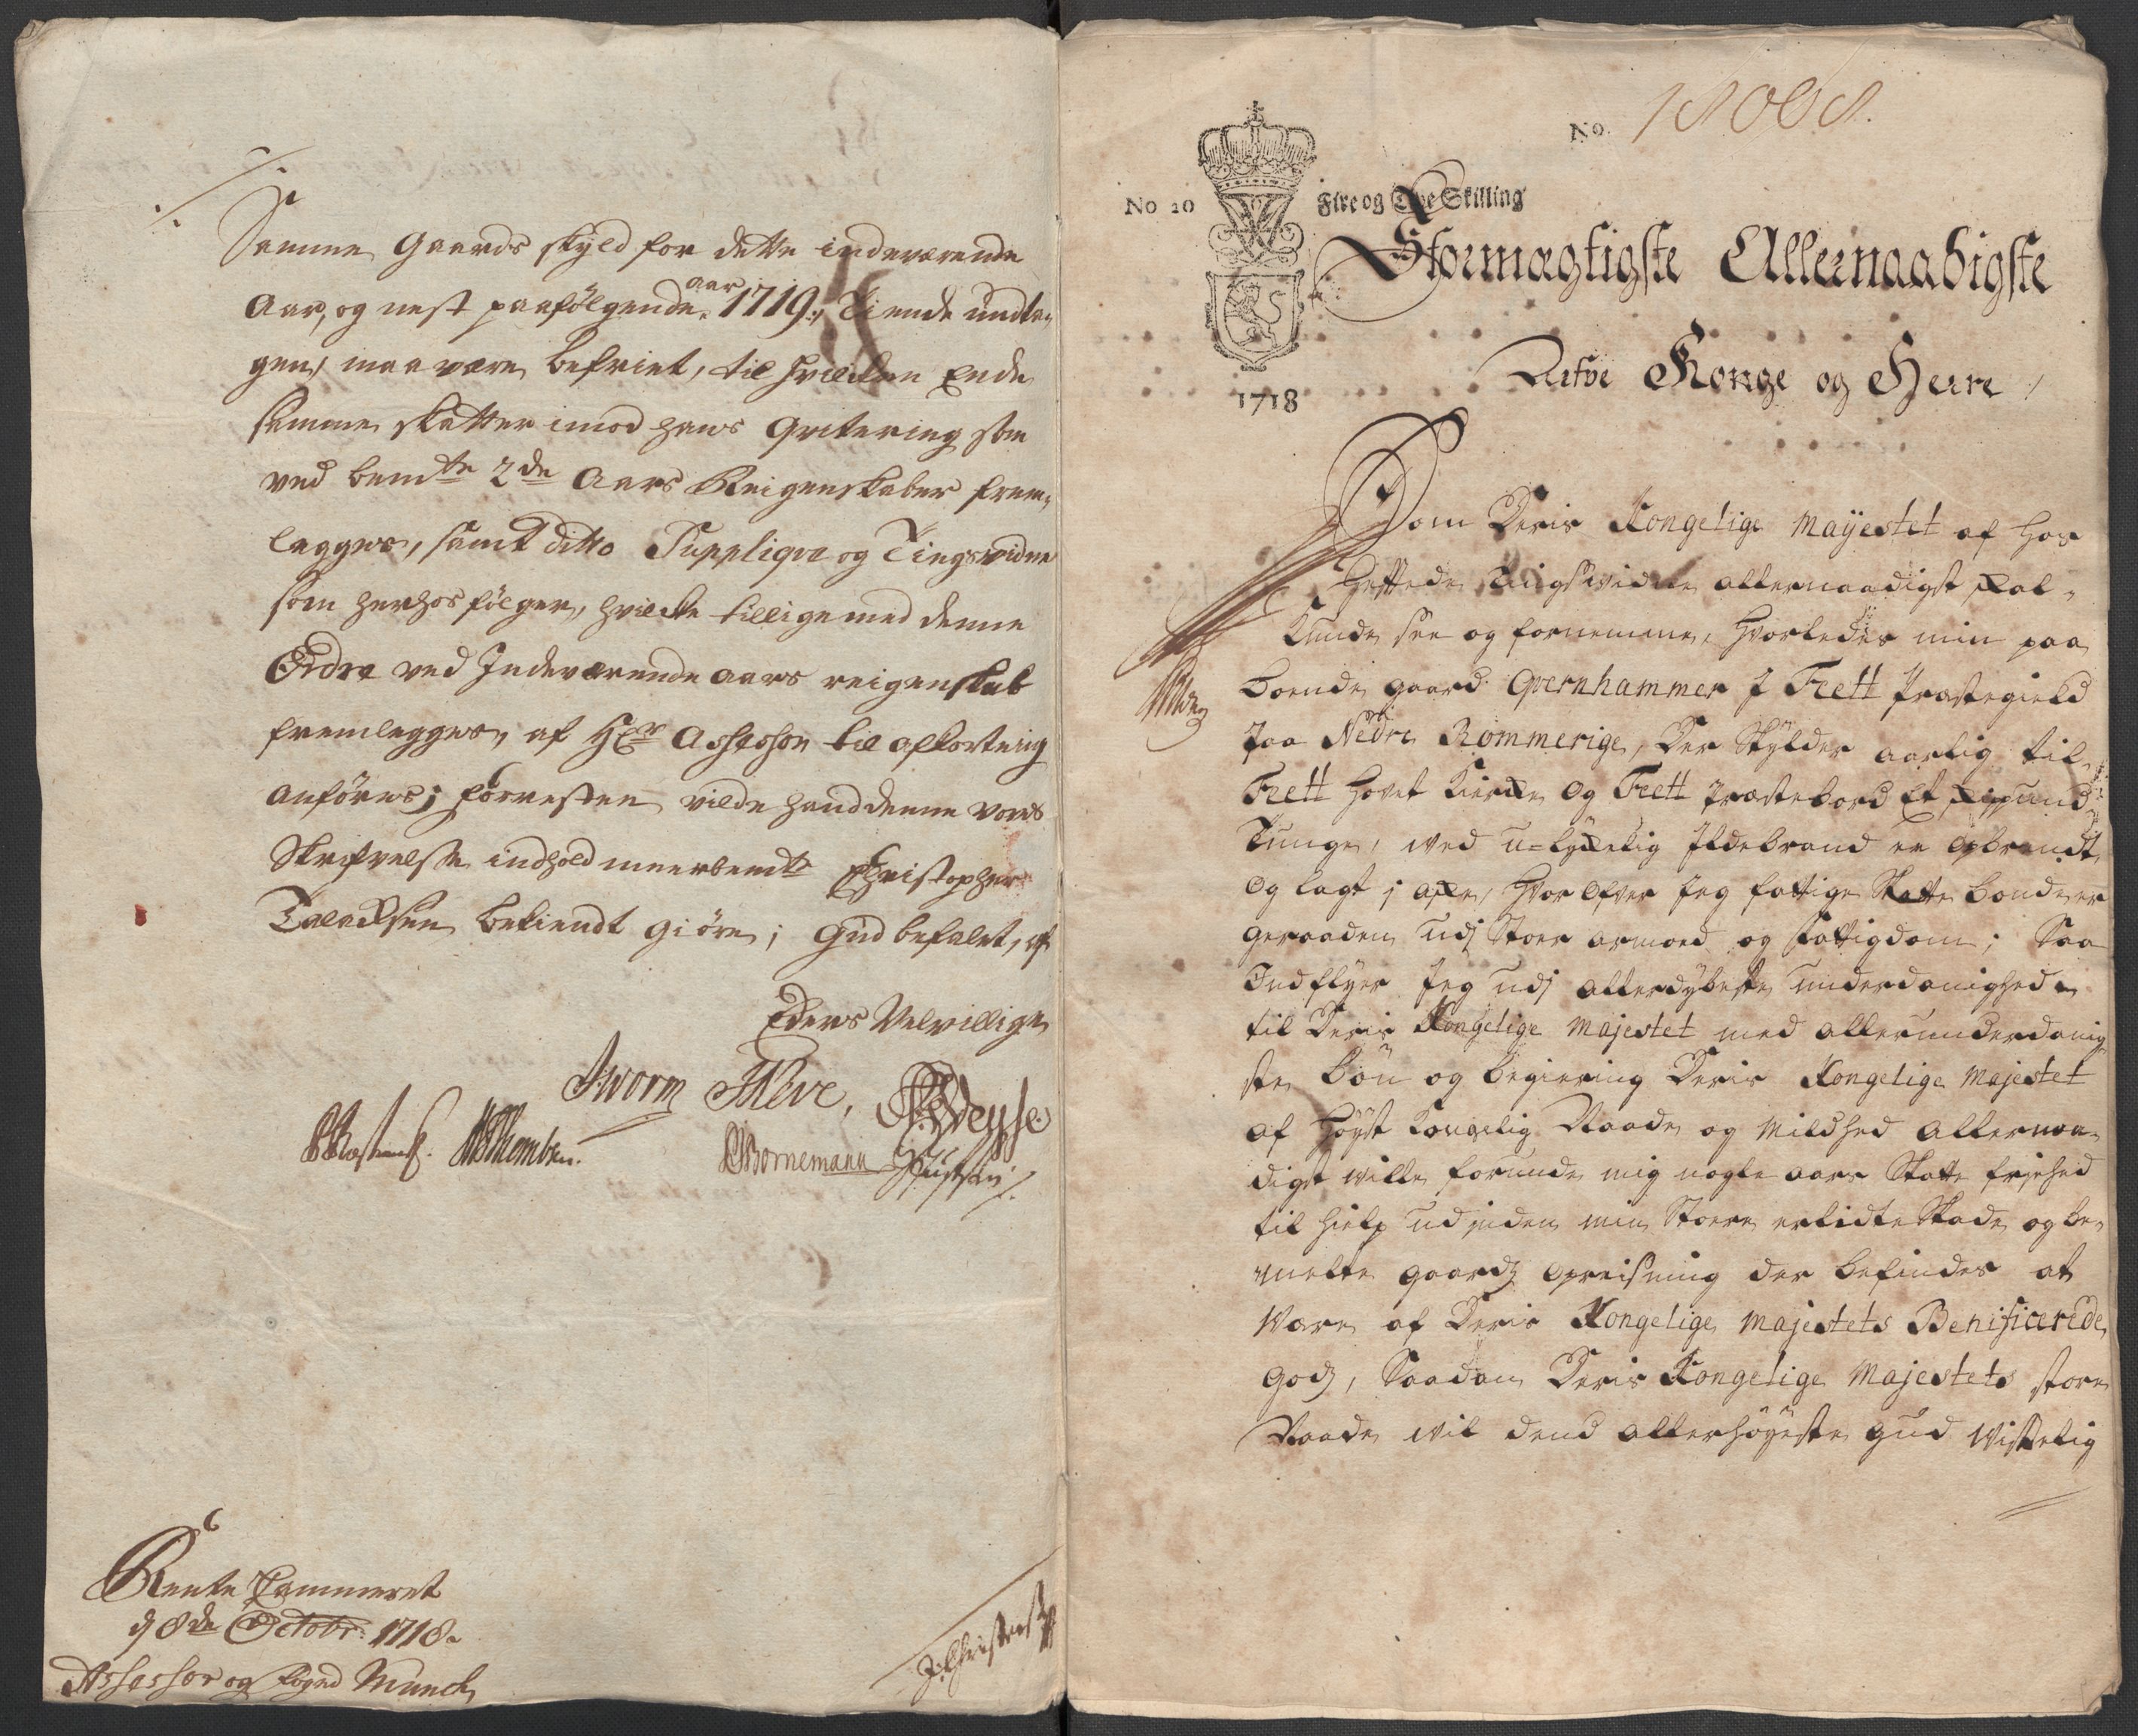 Samme Gaards skyld for dette indeværende
Aar, og nest paafölgende aar 1719, Tiende undta-
gen, maa være befriet, til hvilcken Ende
samme skatter imod hans Qvitering som
ved bemte 2de Aars Reigenskaber frem-
legges, samt ditto Suppliqve og Tingsvidne
som herhos fölger, hvilcke tillige med denne
Ordre ved Indeværende aars reigenskab
fremlegges, af Hr Assessor til afkortning
anföres; forresten vilde hand denne vores
Skrifvelse indhold meerbemte Christopher
befiendt giöre; Gud befalet, af
Eders Velvillige
JWorm
Bornemann
Rente Cammeret
d 8de Octobr: 1718.
Assessor og foged Munch
No. 18008.
No 20 Fire og Tve Skilling
1718
Stormægtigste Allernaadigste
Arfve Konge og Herre,
Som Deris Kongelige Mayestet af hos
Heftede Tingsvidne allernaadigst skal
Kunde see og fornemme, Hvorledes min paa
boende gaard Qvernhammer i Frett Præstegield
Paa Nedre Rommerige, Der Skylder aarlig til
Frett Hovet Kircke Og Frett Præstebord Et skippund
Tunge, ved u-lyckelig Ildebrand er opbrendt
Og lagt i aske, Hvor ofver Jeg fattige Skatte bonde er
geraaden udj Stoer armoed og fattigdom; Saa
Indflyer Jeg udj allerdybeste underdanighed
til Deris Kongelige Majestet med allerunderdanig
ste bön og begiering Deris Kongelige Majestet
af Höyst Kongelig Naade og Mildhed allernaa-
digst ville forunde mig nogle aars Skatte frjehed
til Hielp ud jnden min Stoere erlidte Skade og be-
melte gaards opreisning der befindes at
være af Deris Kongelige Majestets Benificerede
gods, Saadan Deris Kongelige Majestets store
Naade vil dend allerhöyeste Gud Visselig